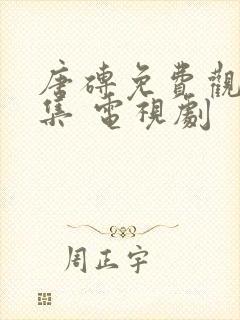 唐磚免費觀
集 電視劇
周正宇